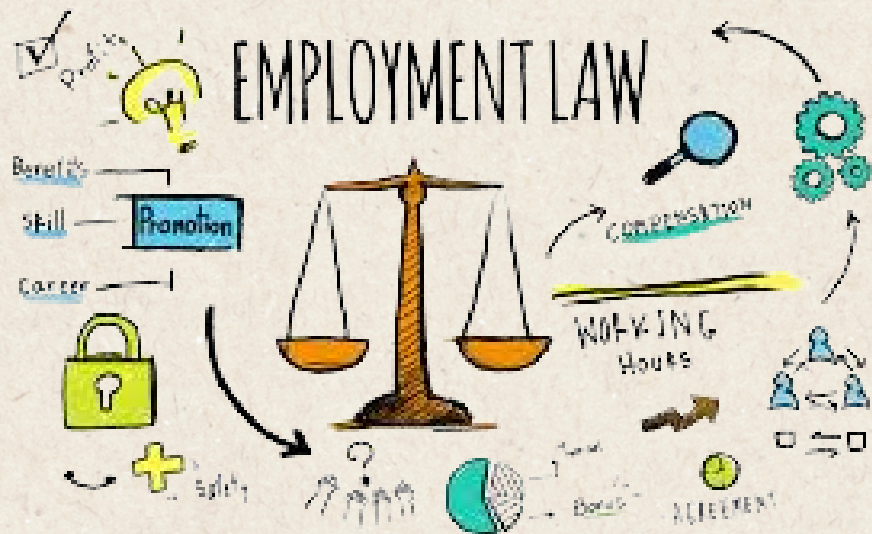 EMPLOYMENT LAW
Benefits
Skill
Promotion
Career
COMPENSATION
WORKING
HOURS
Safety
Bonus
AGREEMENT